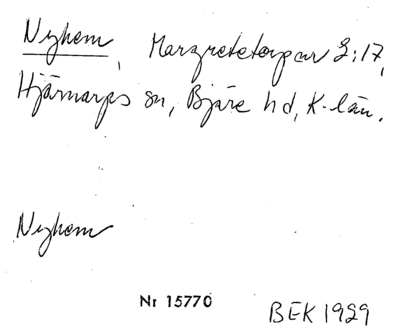 Nyhem, Margretetorpar 2:17,
Hjärnarps sn, Bjäre hd, K-län.
Nyhem
Nr 15770
BEK 1929